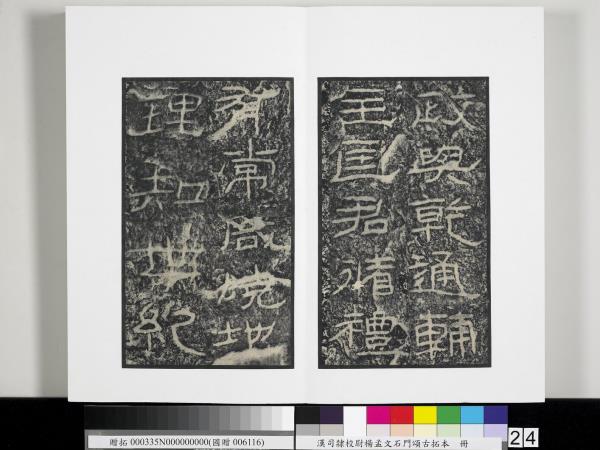 政與乾通輔
主匡君循禮
有常咸曉地
理知世紀
贈拓 000335N000000000(國贈 006116) 漢司隸校尉楊孟文石門頌古拓本 冊
24